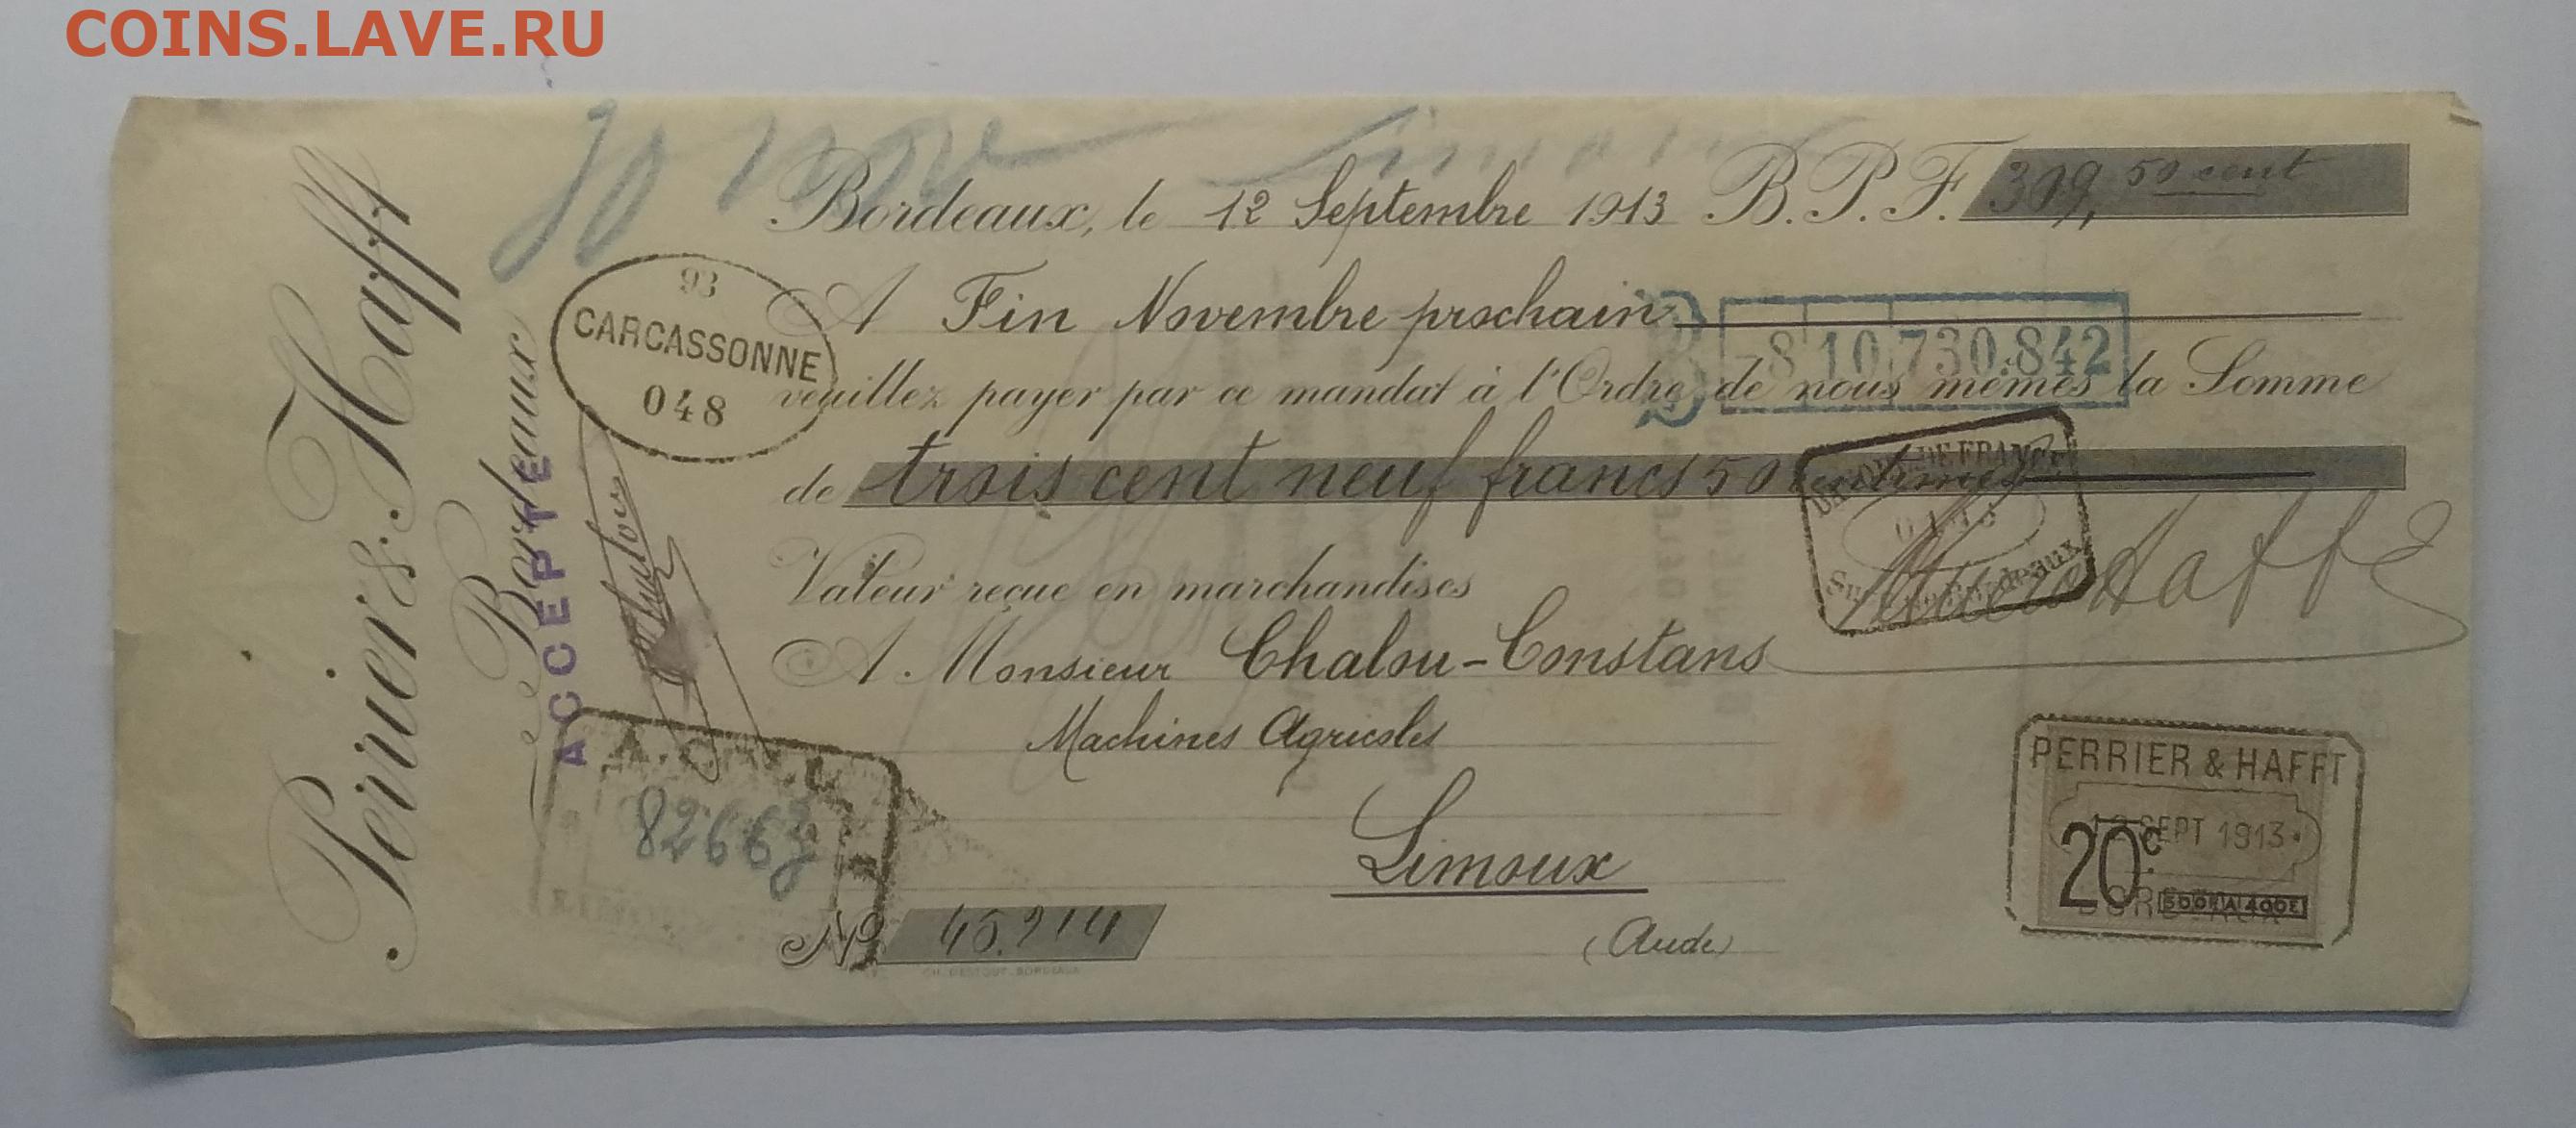 COINS.LAVE.RU
30 nov
Bordeaux, le 12 Septembre 1913 B.P.F. 309, 50 cent
A Fin Novembre prochain
veuillez payer par ce mandat à l'Ordre de nous mêmes la Somme
de trois cent neuf francs 50 centimes
Valeur reçue en marchandises
A Monsieur Chalou-Constans
Machines Agricoles
Limoux
(Aude)
No 45.214
Perrier & Hafft
Bordeaux
ACCEPTÉ
93
CARCASSONNE
048
8 10,730.842
DE FRANCE
Bordeaux
82663
PERRIER & HAFFT
12 SEPT 1913
20c
300F A 400F